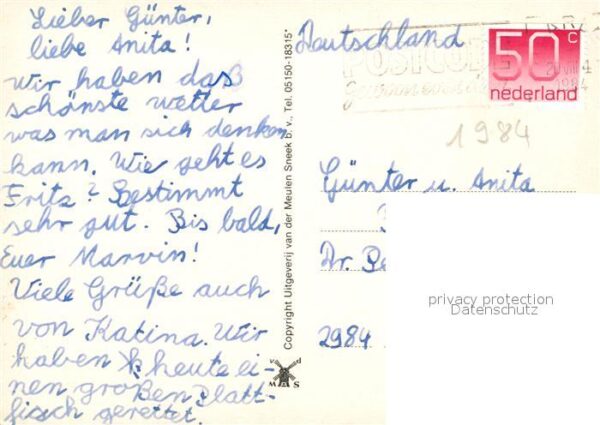 Lieber Günter,
liebe Anita!
Wir haben daß
schönste wetter
was man sich denken
kann. Wie geht es
Fritz? Bestimmt
sehr gut. Bis bald,
Euer Marvin!
Viele Grüße auch
von Katina. Wir
haben heute ei-
nen großen Platt-
fisch gerettet.
Copyright Uitgeverij van der Meulen Sneek b.v., Tel. 05150-18315*
v d
MAS
Deutschland
POSTCODE
50 c
nederland
1984
1984
Günter u. Anita
Dr.
2984
privacy protection
Datenschutz